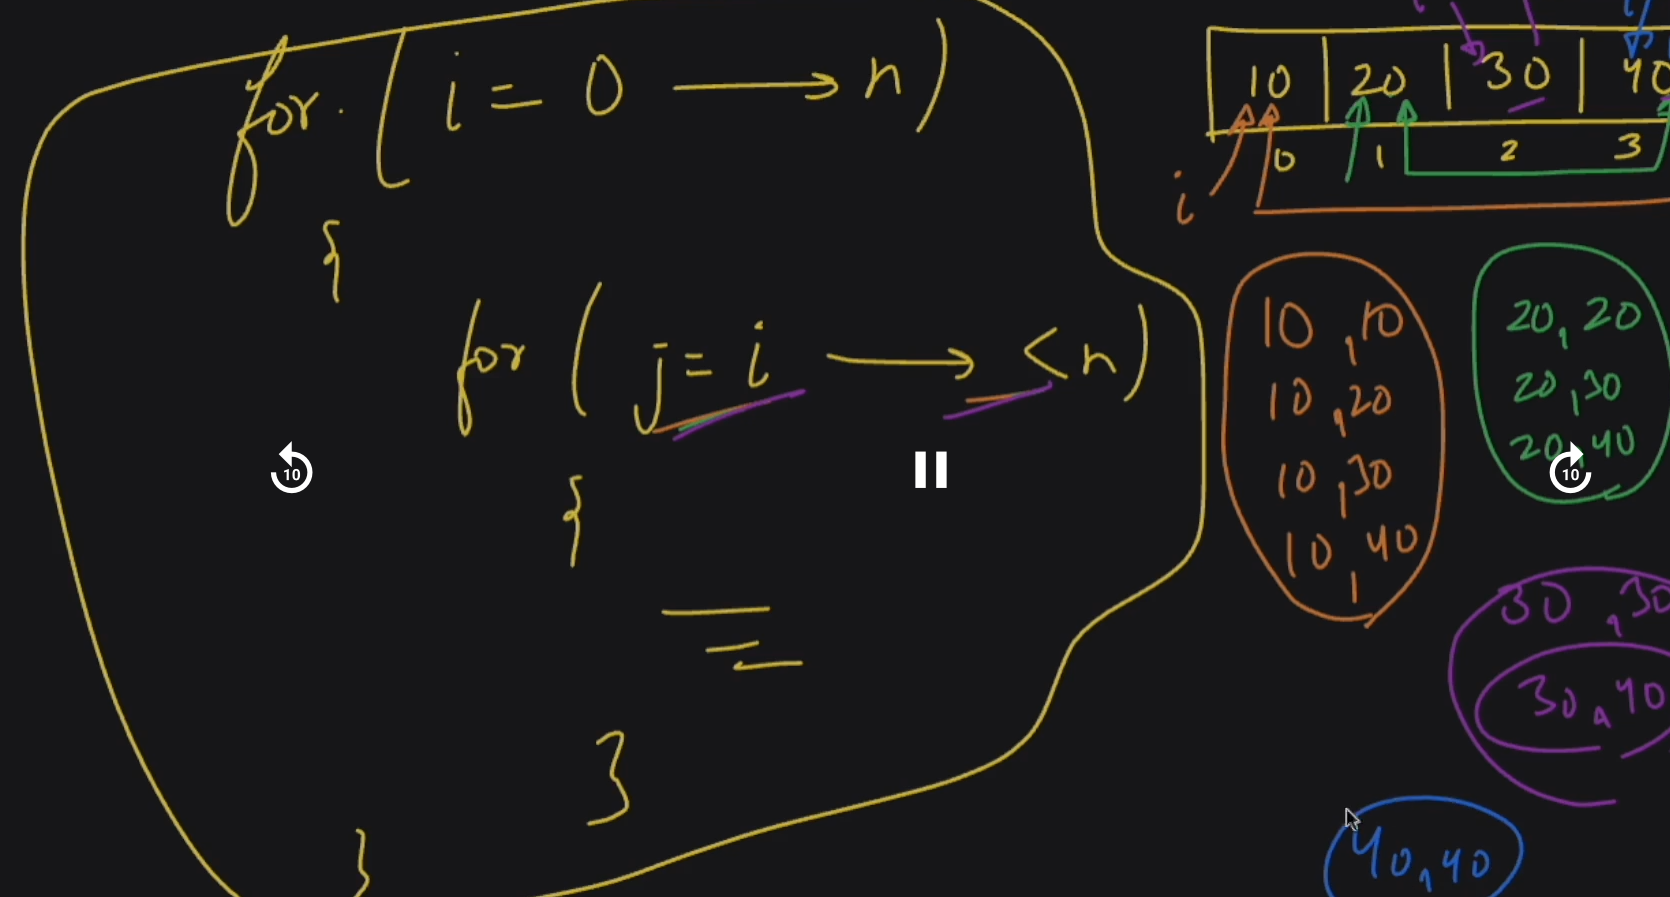 for ( i = 0 → n )
{
for ( j = i → < n )
{
}
}
10 | 20 | 30 | 40
0 1 2 3
i
10 , 10
10 , 20
10 , 30
10 , 40
20 , 20
20 , 30
20 , 40
30 , 30
30 , 40
40 , 40
10
10